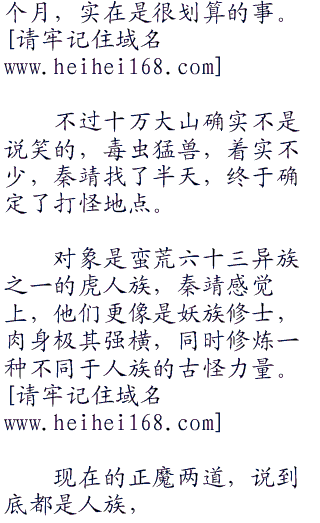 个月，实在是很划算的事。
[请牢记住域名
www.heihei168.com]
不过十万大山确实不是
说笑的，毒虫猛兽，着实不
少，秦靖找了半天，终于确
定了打怪地点。
对象是蛮荒六十三异族
之一的虎人族，秦靖感觉
上，他们更像是妖族修士，
肉身极其强横，同时修炼一
种不同于人族的古怪力量。
[请牢记住域名
www.heihei168.com]
现在的正魔两道，说到
底都是人族，